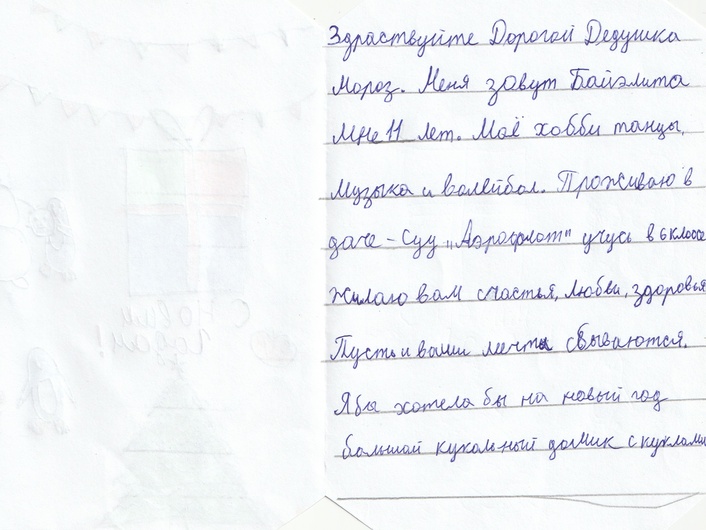 Здраствуйте Дорогой Дедушка
Мороз. Меня зовут Байэлита
Мне 11 лет. Моё хобби танцы,
музыка и волейбол. Проживаю в
даче-суу "Аэрофлот" учусь в 6 классе
Жилаю вам счастья, любви, здоровья
Пусть и ваши мечты сбываются.
Ябы хотела бы на новый год
большой кукольный домик с куклами
С Новым
Годом!